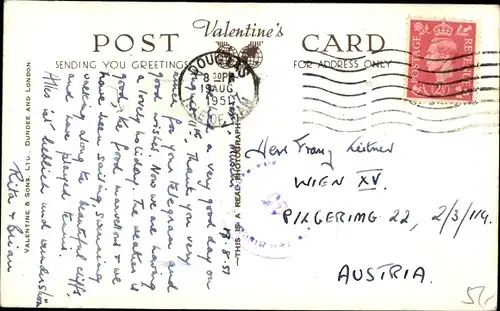 Valentine's
POST CARD
SENDING YOU GREETINGS
FOR ADDRESS ONLY
DOUGLAS
8 30PM
19 AUG
1951
ISLE OF MAN
POSTAGE REVENUE
VALENTINE & SONS, LTD., DUNDEE AND LONDON.
THIS IS A REAL PHOTOGRAPH
18.8.51
We had a very good day on
August. Thank you very
much for your telegram and
good wishes. Now we are having
a lovely holiday. The weather is
good, the food marvellous & we
have been sailing, swimming
walking along the beautiful cliffs,
and have played tennis.
Alles ist lieblich und wunderschön
Rita & Brian
Herr Franz Leitner
WIEN XV.
PILGERIMG. 22, 2/3/114.
AUSTRIA.